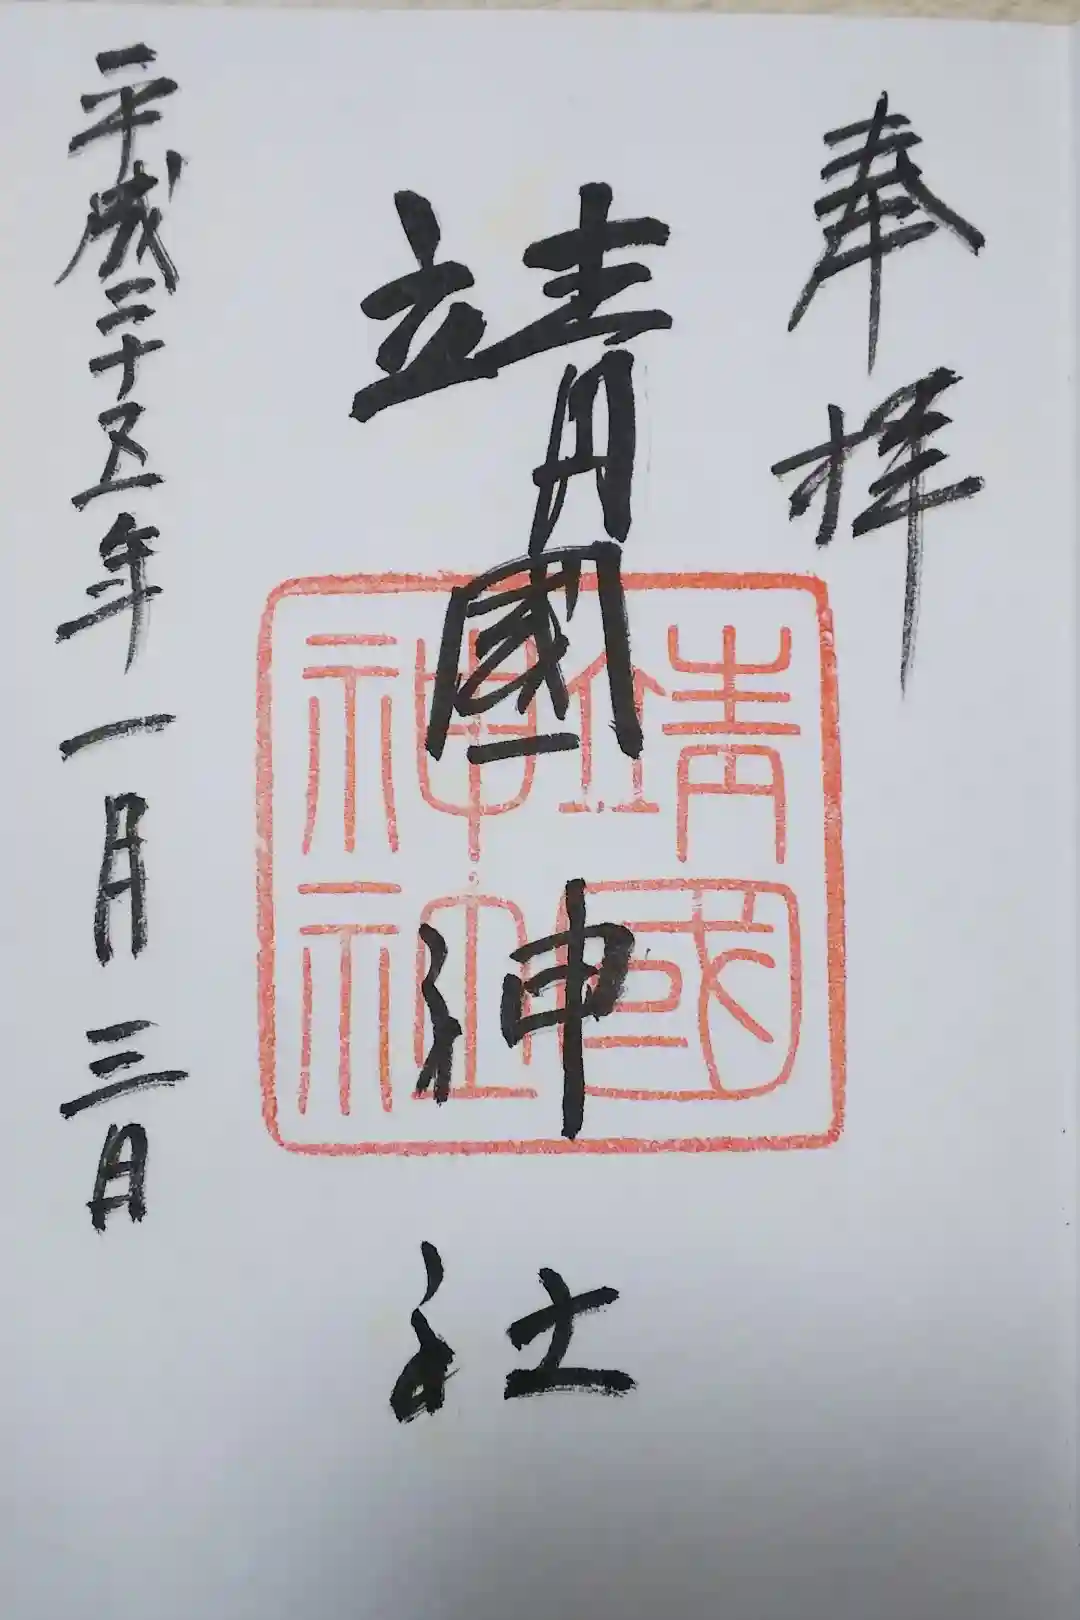 奉拝
靖國神社
靖國
神社
平成二十五年一月三日